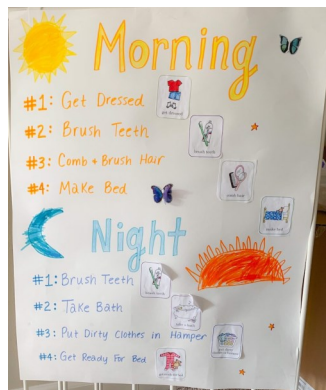 Morning
#1: Get Dressed
get dressed
#2: Brush Teeth
brush teeth
#3: Comb + Brush Hair
#4: Make Bed
Night
#1: Brush Teeth
#2: Take Bath
#3: Put Dirty Clothes in Hamper
#4: Get Ready For Bed